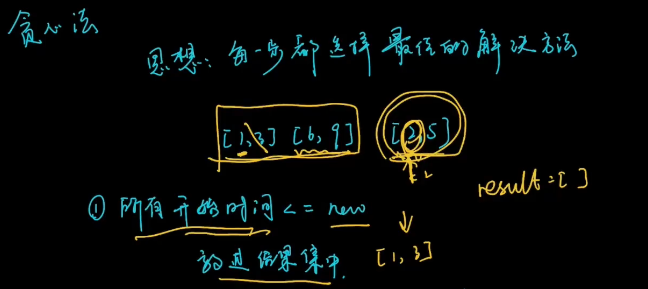 贪心法
思想: 每一步都选择最佳的解决方法
[1,3] [6,9] [2,5]
result=[ ]
① 所有开始时间 <= new
放进结果集中.
[1,3]